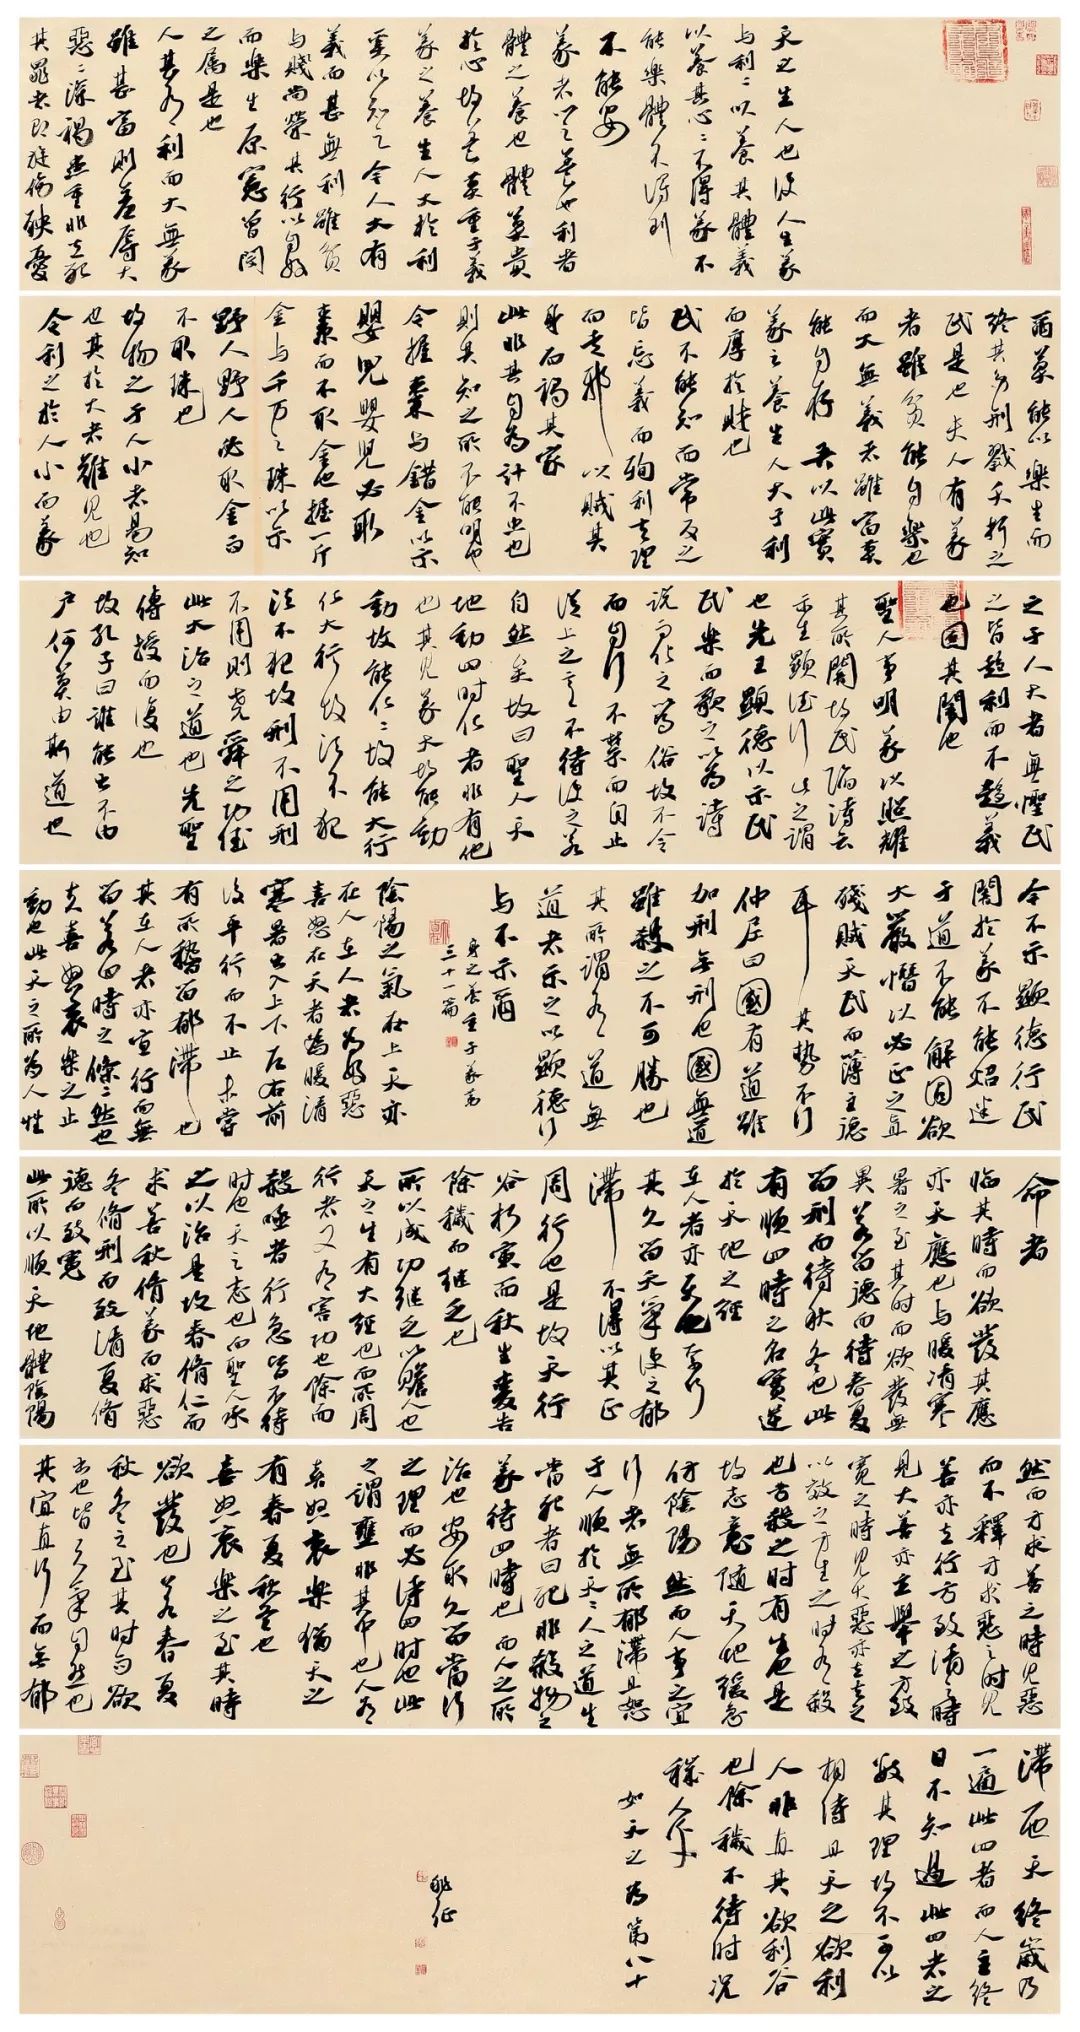 天之生人也使人生義
與利利以養其體義
以養其心心不得義不
能樂體不得利
不能安
義者心之養也利者
體之養也體莫貴
於心故養莫重于義
義之養生人大於利
奚以知之今人大有
義而甚無利雖貧
與賤尚榮其行以自好
而樂生原憲曾閔
之屬是也
人甚有利而大無義
雖甚富則羞辱大
惡惡深禍患重非立死
其罪者即旋傷殃憂
爾莫能以樂生而
終其身刑戮夭折之
民是也夫人有義
者雖貧能自樂也
而大無義者雖富莫
能自存吾以此實
義之養生人大于利
而厚於財也
民不能知而常反之
皆忘義而殉利去理
而走邪以賊其
身而禍其家
此非其自為計不忠也
則其知之所不能明也
今握棗與錯金以示
嬰兒嬰兒必取
棗而不取金也握一斤
金與千萬之珠以示
野人野人必取金而
不取珠也
故物之于人小者易知
也其於大者難見也
今利之於人小而義
之于人大者無怪民
之皆趨利而不趨義
也固其闇也
聖人事明義以照耀
其所闇故民陷詩云
示顯德行此之謂
也先王顯德以示民
民樂而歌之以為詩
說而化之為俗故不令
而自行不禁而自止
從上之意不待使之若
自然矣故曰聖人天
地動四時化者非有他
也其見義大故能動
動故能化化故能大行
化大行故法不犯
法不犯故刑不用刑
不用則堯舜之功德
此大治之道也先聖
傳授而復也
故孔子曰誰能出不由
戶何莫由斯道也
今不示顯德行民
闇於義不能炤迷
于道不能解固欲
大嚴憯以必正之直
殘賊天民而薄主德
耳其勢不行
仲尼曰國有道雖
加刑無刑也國無道
雖殺之不可勝也
其所謂有道無
道者示之以顯德行
與不示爾
身之養重于義第
三十一篇
陰陽之氣在上天亦
在人在人者為好惡
喜怒在天者為暖清
寒暑出入上下左右前
後平行而不止未嘗
有所稽留郁滯也
其在人者亦宜行而無
留若四時之條條然也
夫喜怒哀樂之止
動也此天之所為人性
命者
臨其時而欲發其應
亦天應也與暖清寒
暑之至其時而欲發無
異若留德而待春夏
留刑而待秋冬也此
有順四時之名實逆
於天地之經
在人者亦天也奈何
其久留天氣使之郁
滯不得以其正
周行也是故天行
谷朽寅而秋生麥告
除穢而繼乏也
所以成功繼乏以贍人也
天之生有大經也而所周
行者又有害功也除而
殺殛者行急皆不待
時也天之志也而聖人承
之以治是故春脩仁而
求善秋脩義而求惡
冬脩刑而致清夏脩
德而致寬
此所以順天地體陰陽
然而方求善之時見惡
而不釋方求惡之時見
善亦立行方致清之時
見大善亦立舉之方致
寬之時見大惡亦立去之
以效之方生之時有殺
也方殺之時有生也是
故志意隨天地緩急
仿陰陽然而人事之宜
行者無所郁滯且恕
于人順於天天人之道生
當死者曰死非殺物之
義待四時也而人之所
治也安取久留當行
之理而必待四時也此
之謂壅非其中也人有
喜怒哀樂猶天之
有春夏秋冬也
喜怒哀樂之至其時
欲發也若春夏
秋冬之至其時而欲
出也皆天氣自然也
其宜直行而無郁
滯一也天終歲乃
一遍此四者而人主終
日不知過此四者之
數其理故不可以
相待且天之欲利
人非直其欲利谷
也除穢不待時況
穢人乎
如天之為第八十
姚征